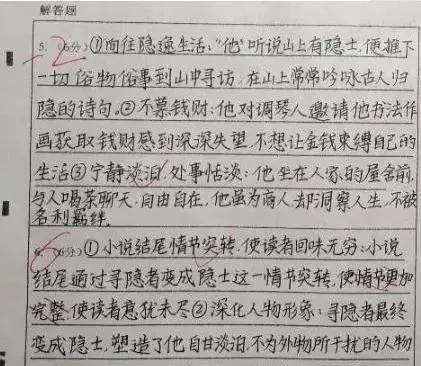 解答题
5. (6分) ①向往隐逸生活:“他”听说山上有隐士,便推下
一切俗物俗事到山中寻访,在山上常常吟咏古人归
隐的诗句。②不慕钱财:他对调琴人邀请他书法作
画获取钱财感到深深失望,不想让金钱束缚自己的
生活③宁静淡泊,处事恬淡:他坐在人家的屋舍前,
与人喝茶聊天,自由自在,他虽为商人却洞察人生,不被
名利羁绊。
6. (6分) ①小说结尾情节突转,使读者回味无穷:小说
结尾通过寻隐者变成隐士这一情节突转,使情节更加
完整,使读者意犹未尽②深化人物形象:寻隐者最终
变成隐士,塑造了他自甘淡泊,不为外物所干扰的人物